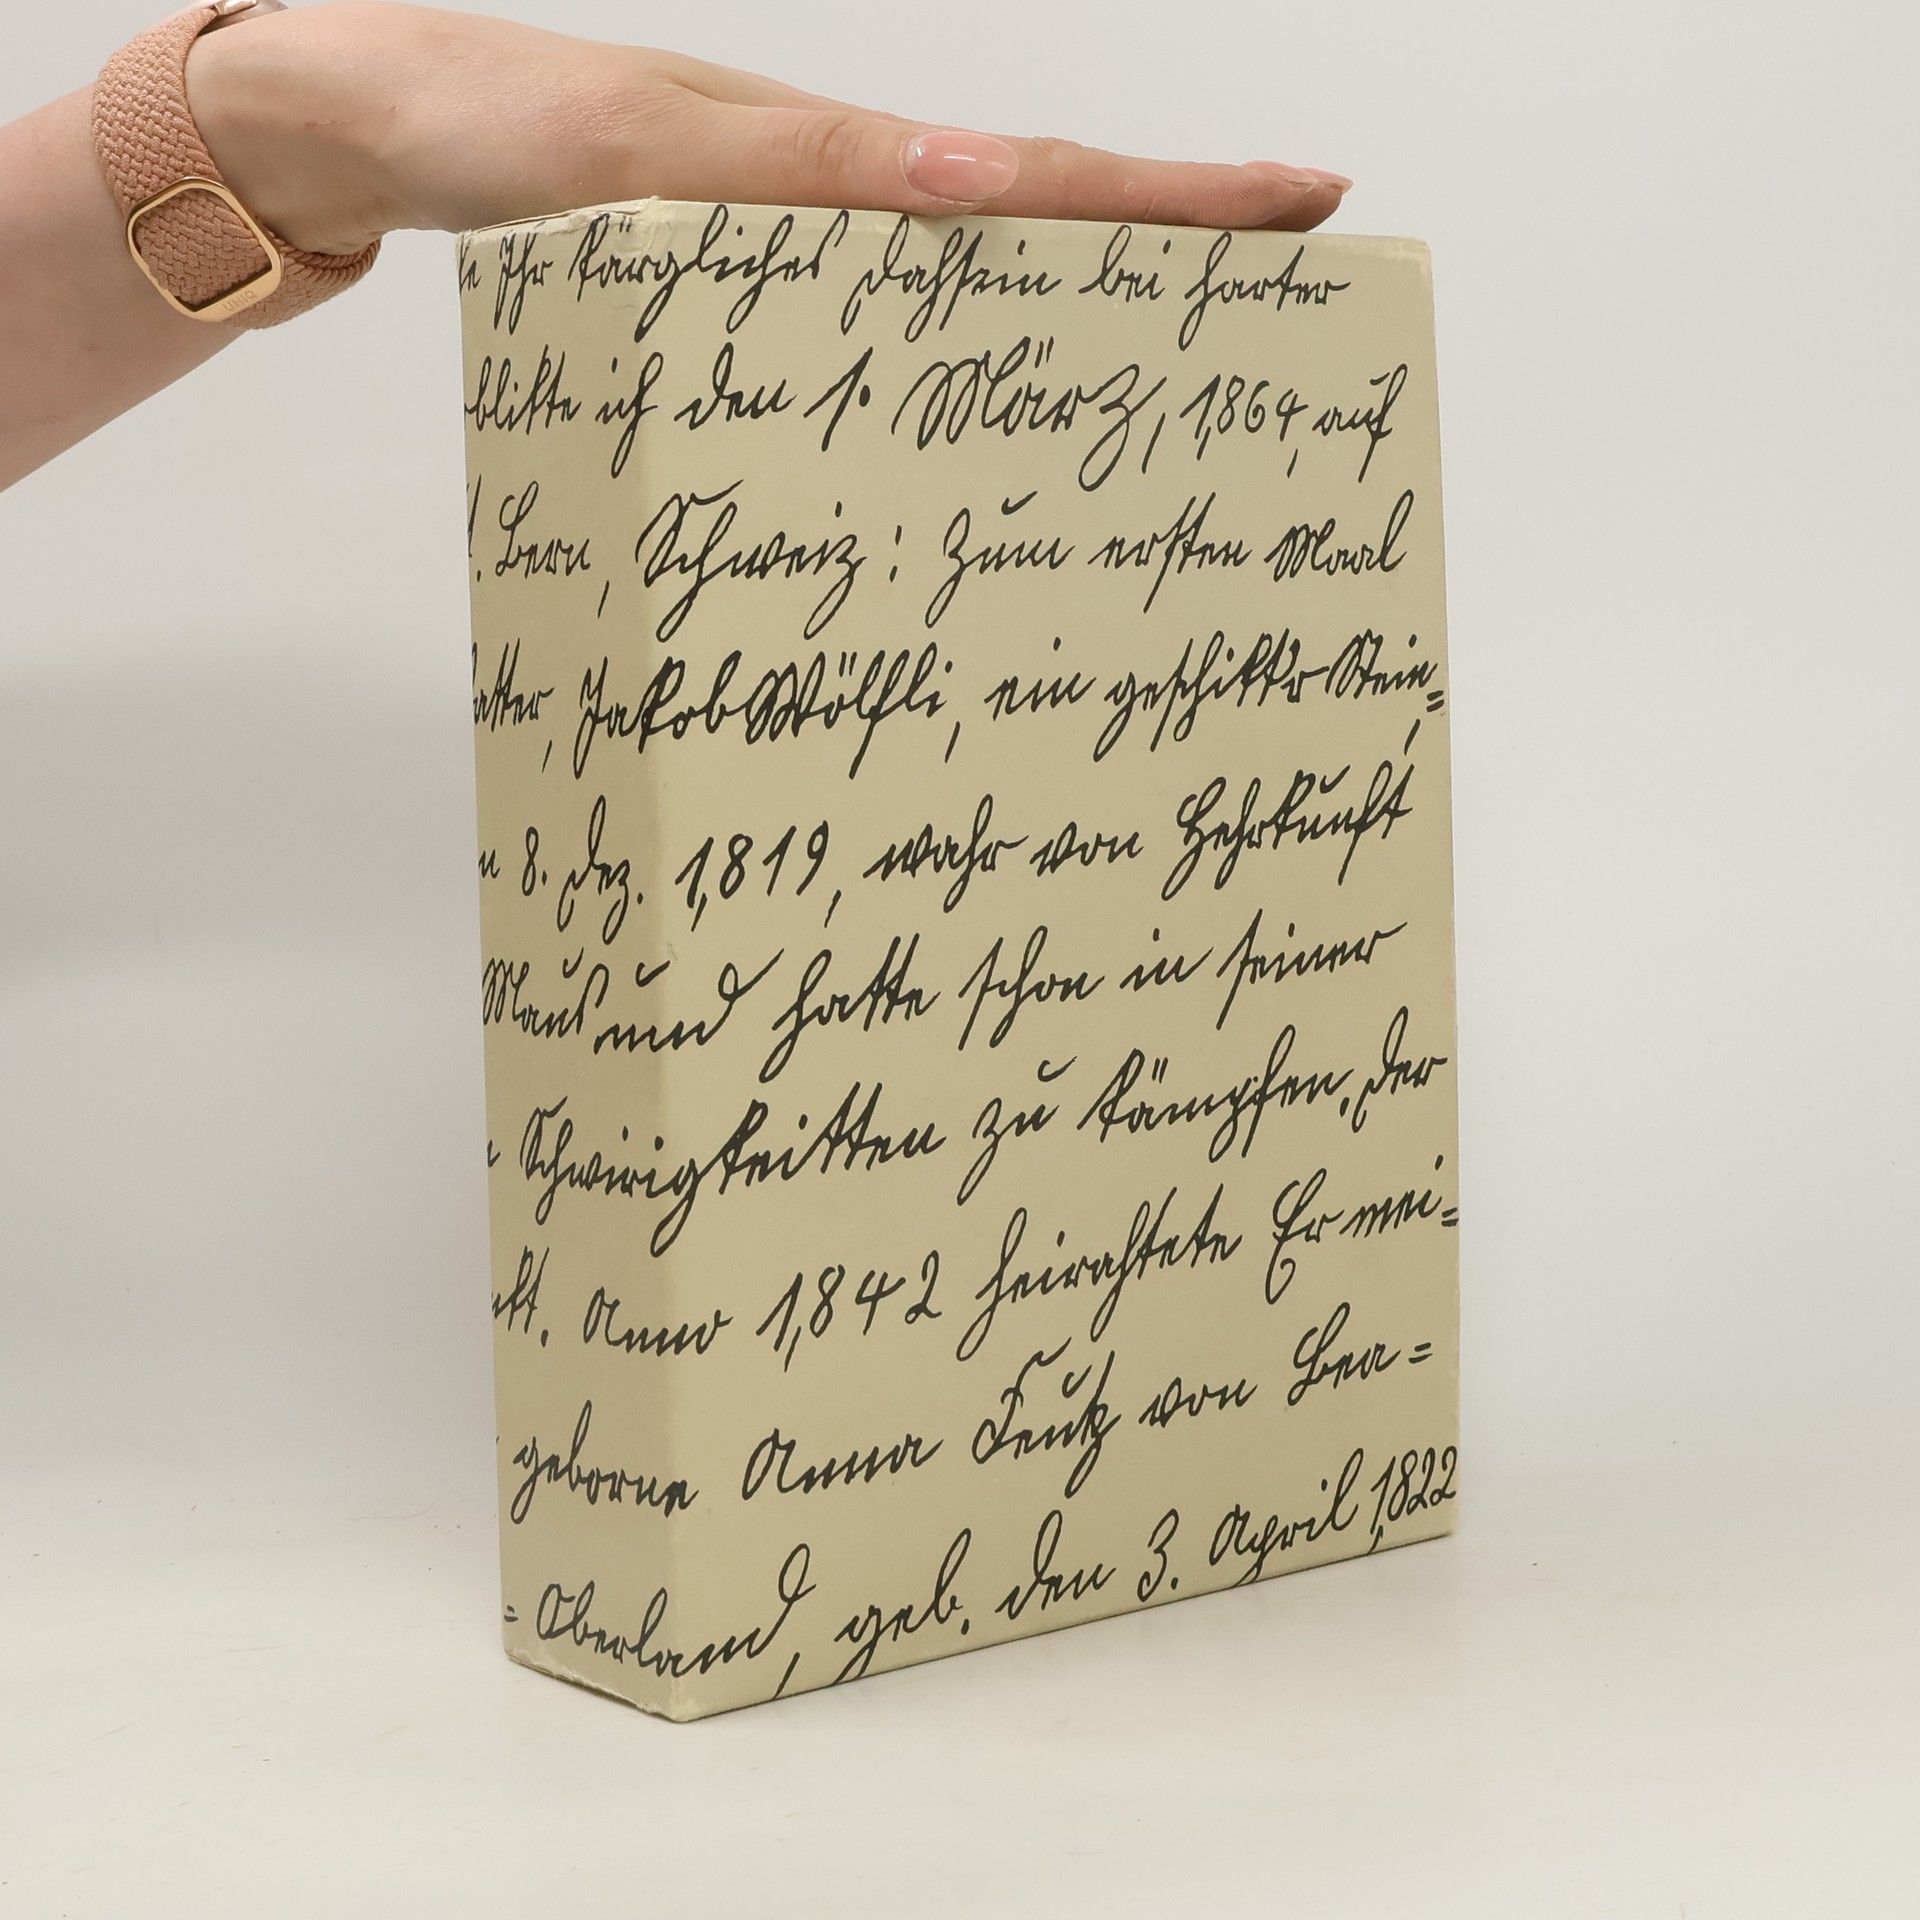 Ihr kärgliches Dahsein bei harter
blikte ich den 1. März, 1,864, auf
Bern, Schweiz: Zum ersten Maal
atter, Jakob Wölfli, ein geschiktr Stein=
n 8. Dez. 1,819, wahr von Hehrkunft
Maus und hatte schon in seiner
Schwirigkeitten zu kämpfen. Der
nft. Anno 1,842 heirahtete Er mei=
geborne Anna Feutz von Bea=
= Oberland, geb. den 3. April 1,822